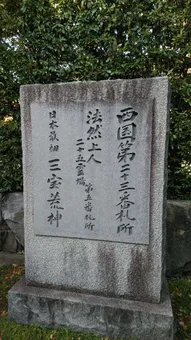 西国第二十三番札所
法然上人
二十五霊場 第五番札所
日本最初 三宝荒神